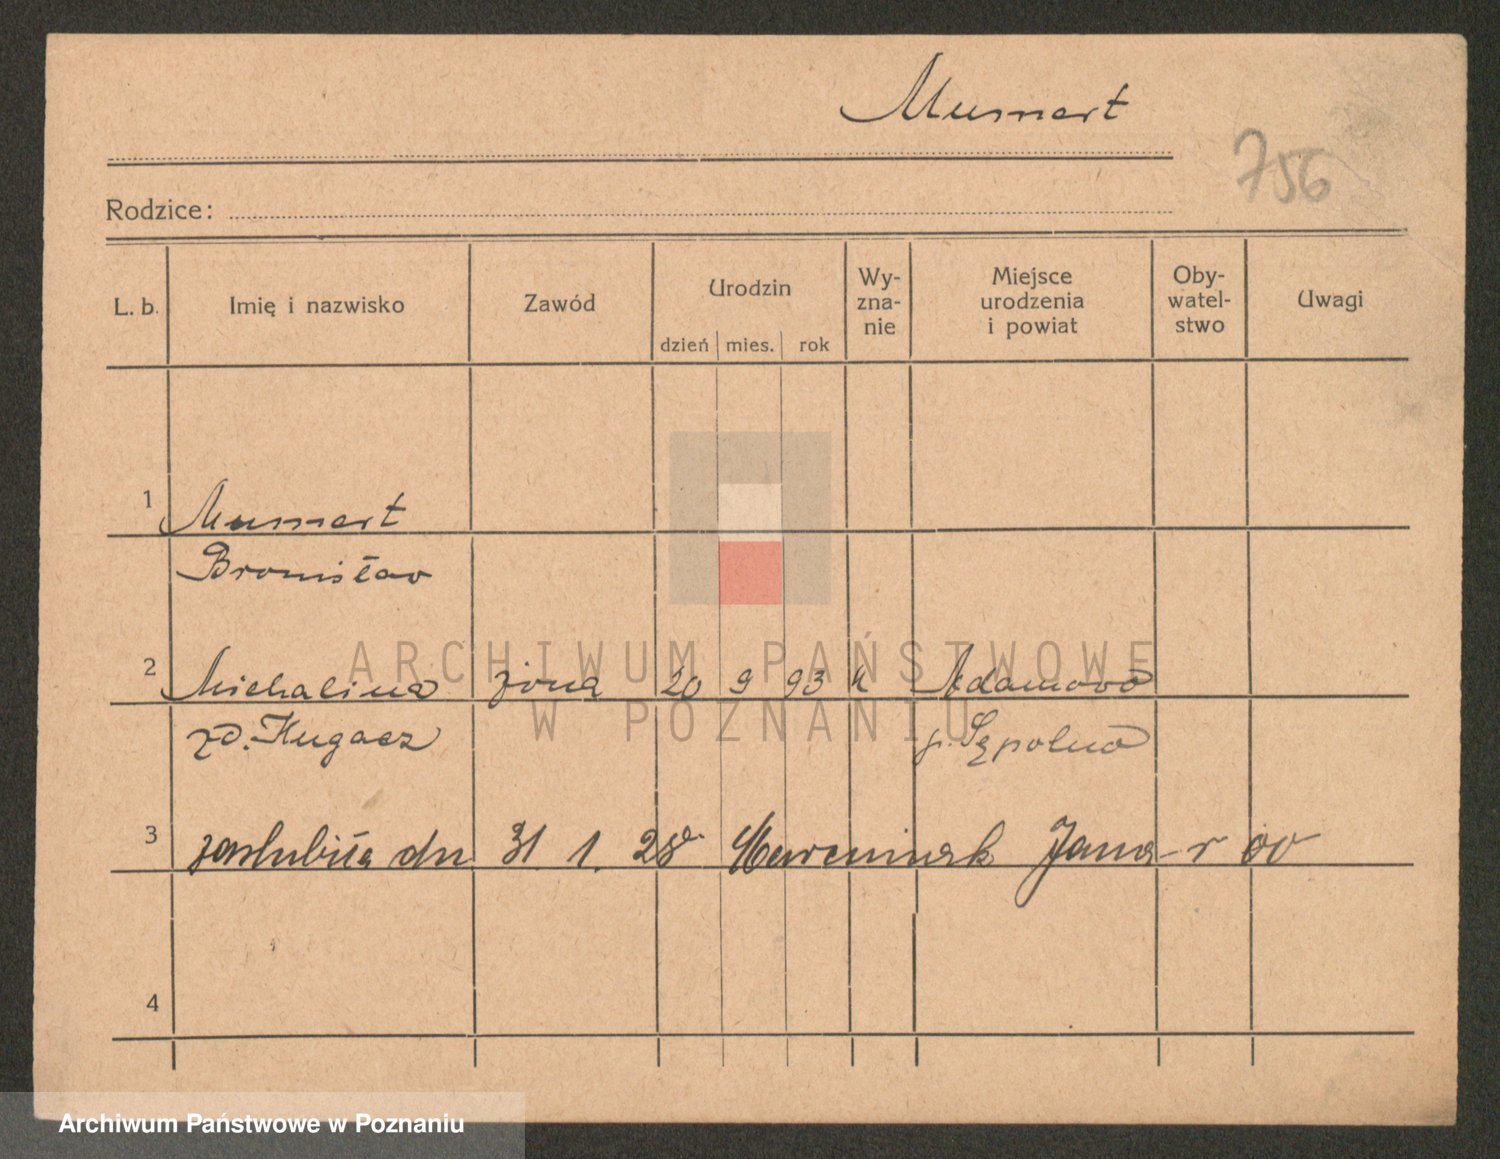 Mumert
756
Rodzice:
L. b. Imię i nazwisko Zawód Urodzin Wy-zna-nie Miejsce urodzenia i powiat Oby-watel-stwo Uwagi
dzień mies. rok
1 Mumert
Bronisław
ARCHIWUM PAŃSTWOWE
2 Michalina żona 20 9 93 k Adamowo
W POZNANIU
zd. Kugacz p. Sępolno
3 zaślubiła dn 31 1. 28 Marciniak Jana
4
Archiwum Państwowe w Poznaniu